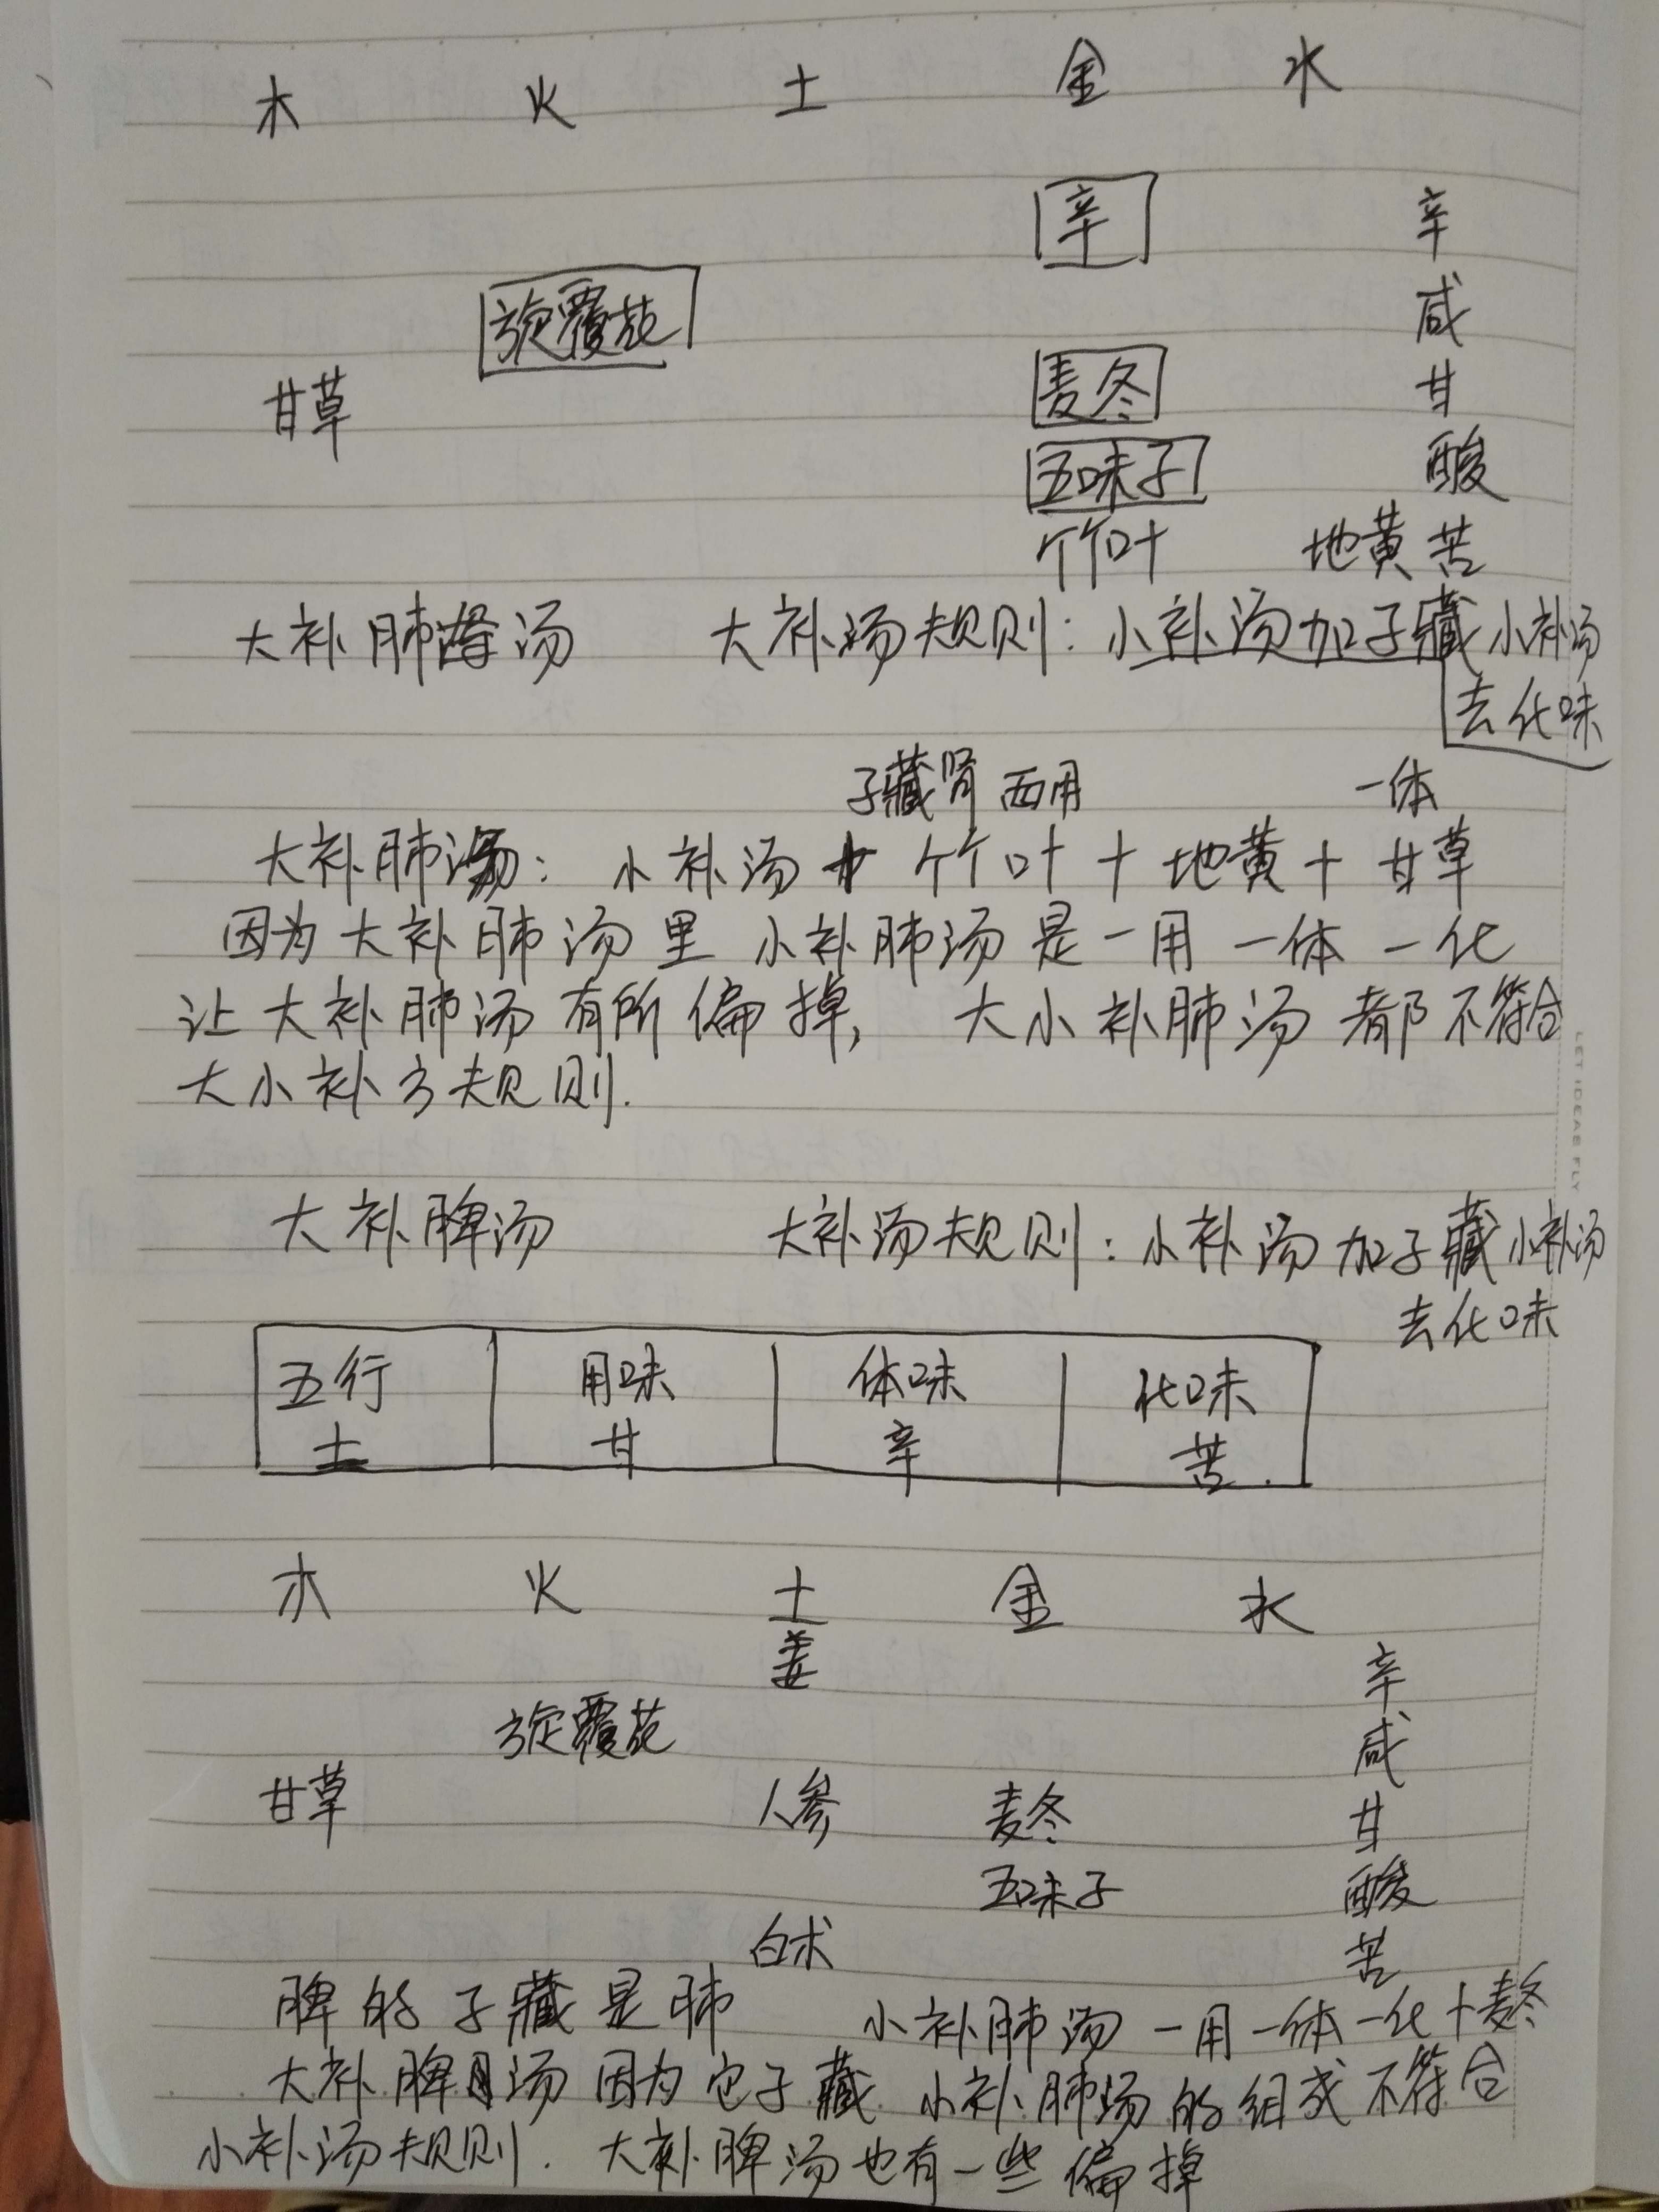 木 火 土 金 水
辛 辛
旋覆花 咸
甘草 麦冬 甘
五味子 酸
竹叶 地黄 苦
大补肺汤 大补汤规则：小补汤加子藏小补汤
去化味
子藏肾 两用 一体
大补肺汤：小补汤＋竹叶＋地黄＋甘草
因为大补肺汤里小补肺汤是一用一体一化
让大补肺汤有所偏掉，大小补肺汤都不符合
大小补方规则.
LET IDEAS FLY
大补脾汤 大补汤规则：小补汤加子藏小补汤
去化味
五行 用味 体味 化味
土 甘 辛 苦.
木 火 土 金 水
姜 辛
旋覆花 咸
甘草 人参 麦冬 甘
五味子 酸
白术 苦
脾的子藏是肺 小补肺汤一用一体一化＋麦冬
大补脾汤因为它子藏小补肺汤的组成不符合
小补汤规则. 大补脾汤也有一些偏掉